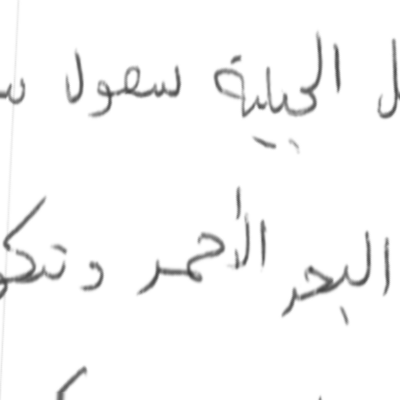 الجبلية سهول
البحر الأحمر وتكو